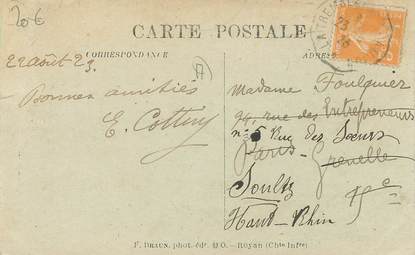 20€
CARTE POSTALE
CORRESPONDANCE
22 août 23.
Bonnes amitiés
E. Cottin
LA TREMBLADE
Madame Foulquier
94, rue des Entrepreneurs
n° 5 Rue des Sœurs
Paris - Grenelle
Soultz
15e
Haut-Rhin
F. BRAUN, phot. édr. - Royan (Chte Infre)